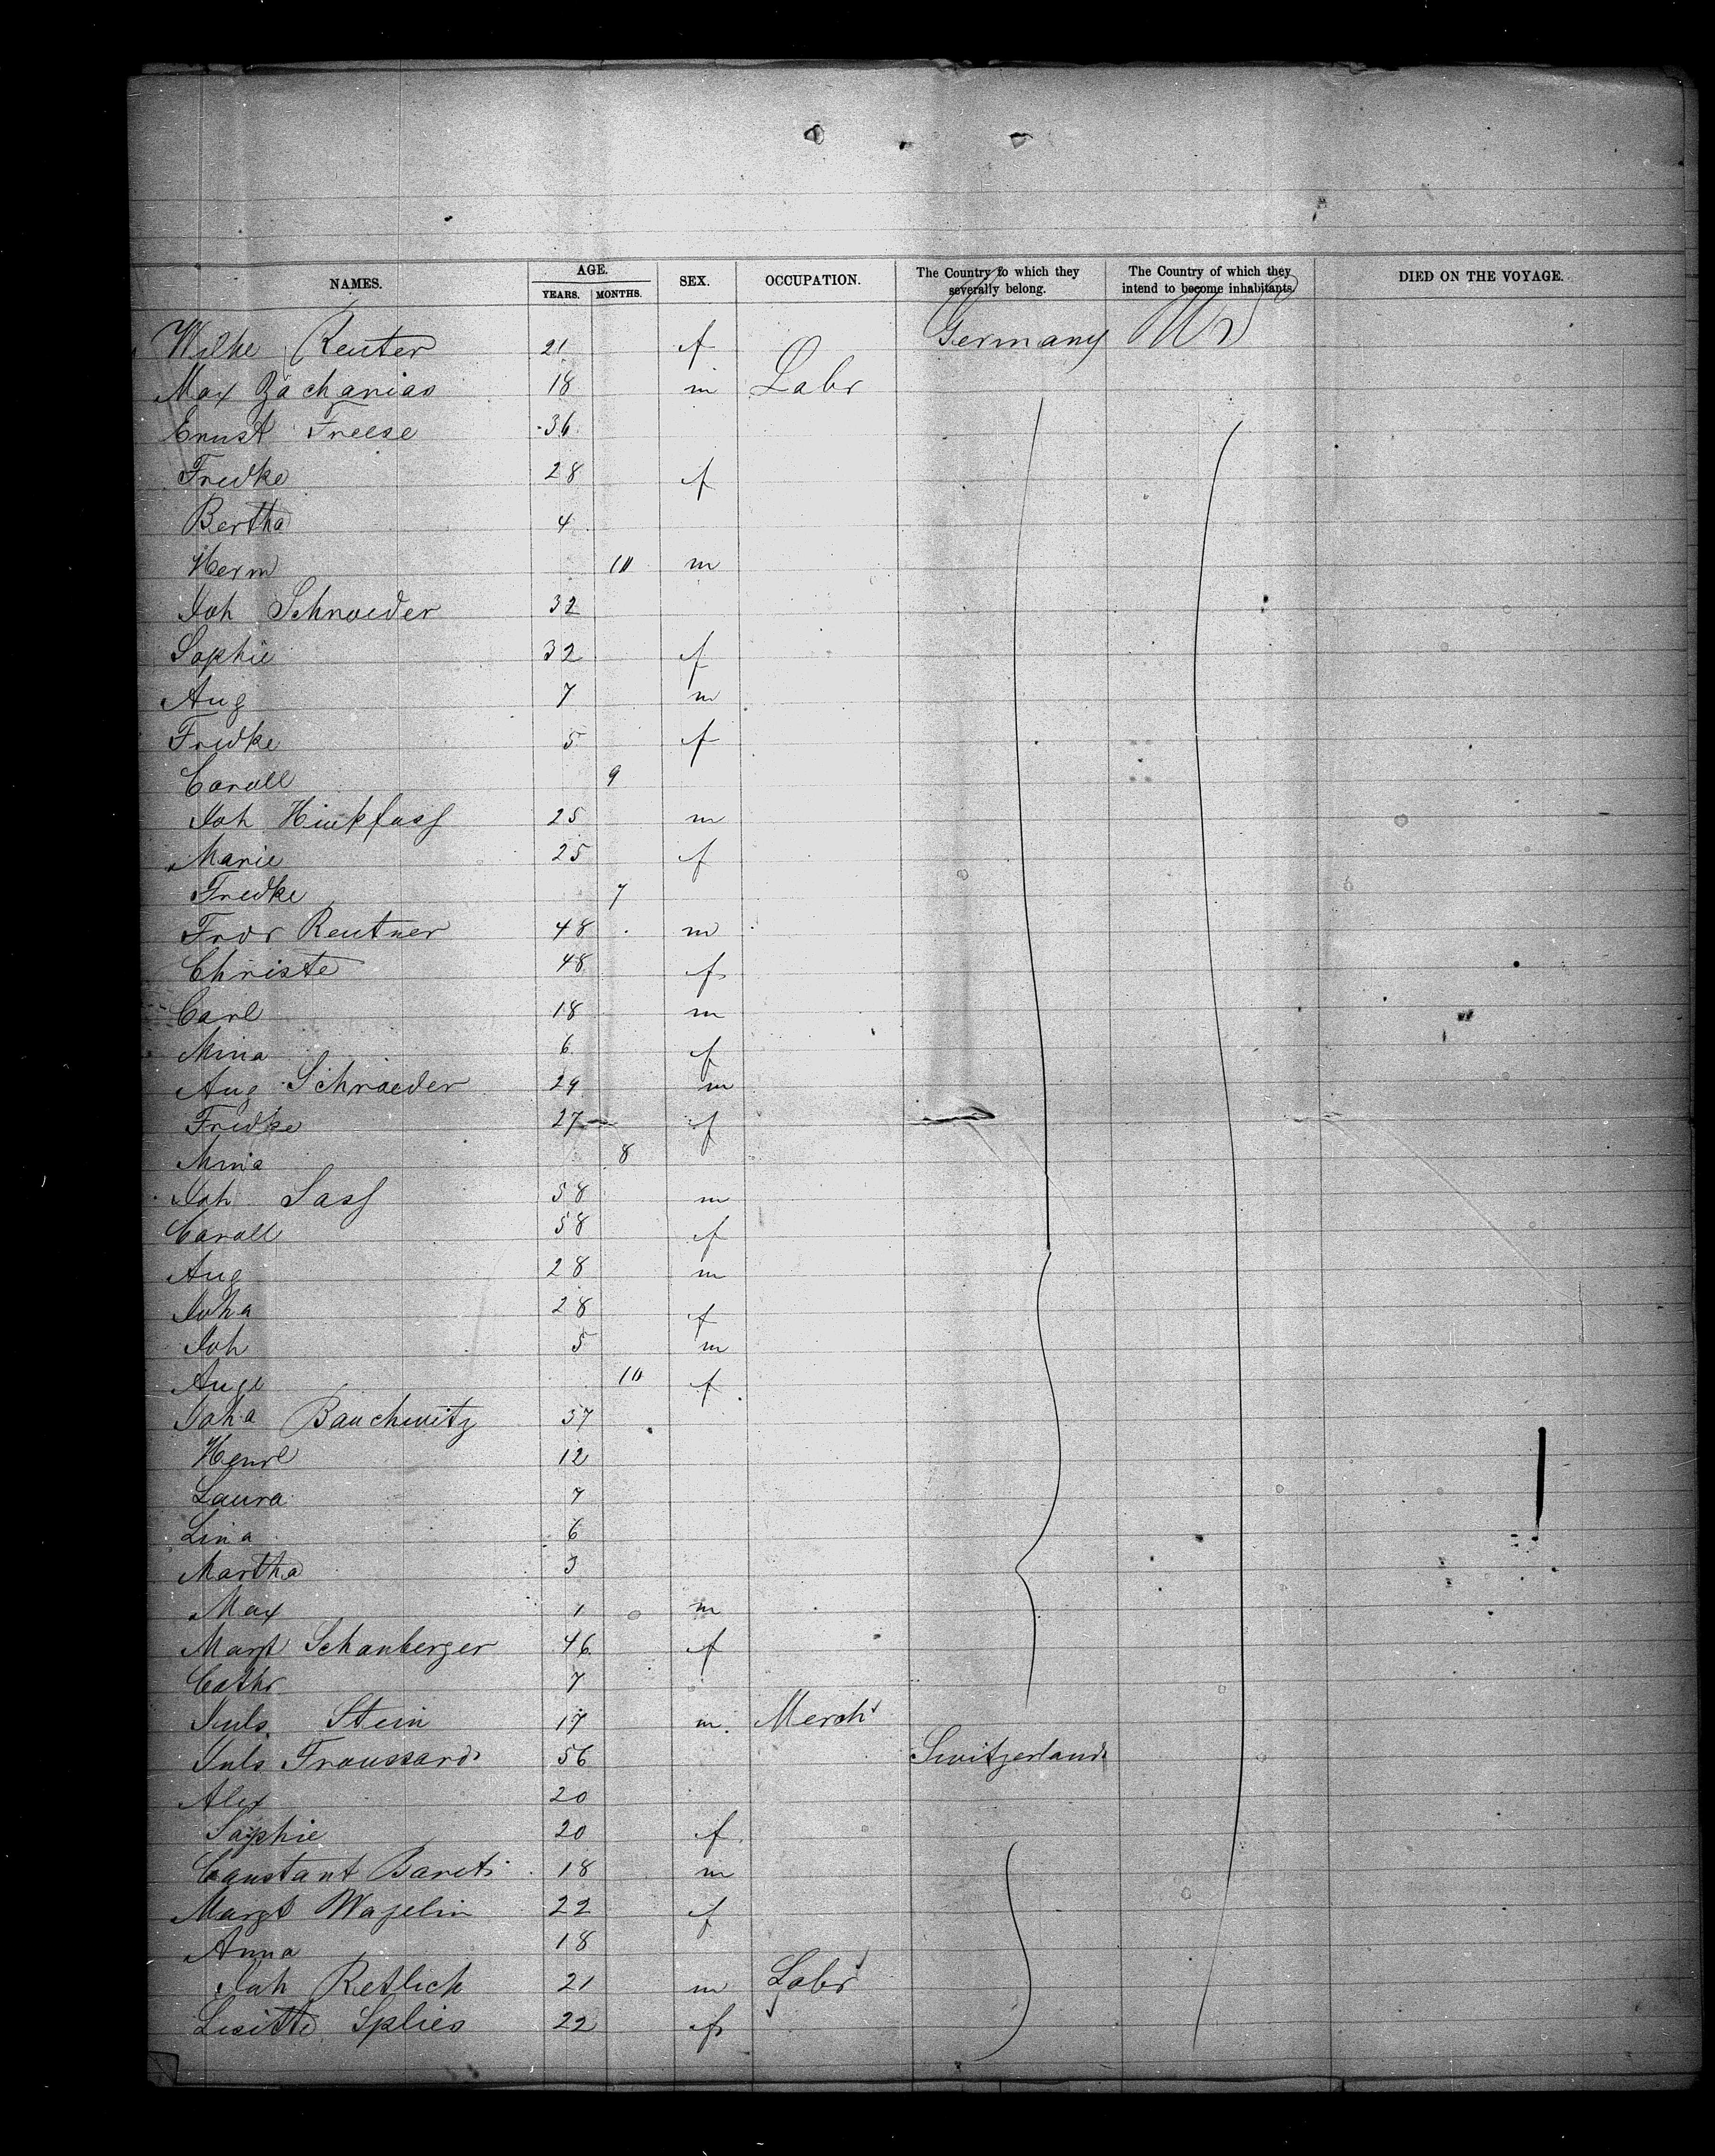 NAMES. AGE. YEARS. MONTHS. SEX. OCCUPATION. The Country to which they severally belong. The Country of which they intend to become inhabitants. DIED ON THE VOYAGE.
Wilhe Reuter 21 f Germany US
Max Zacharias 18 m Labr
Ernst Freese 36
Fredke 28 f
Bertha 4
Herm 10 m
Joh Schroeder 32
Sophie 32 f
Aug 7 m
Fredke 5 f
Caroll 9
Joh Hinkfass 25 m
Marie 25 f
Fredke 7
Frdr Reutner 48 m
Christe 48 f
Carl 18 m
Mina 6 f
Aug Schroeder 29 m
Fredke 27 f
Mina 8
Joh Sass 58 m
Caroll 58 f
Aug 28 m
Joha 28 f
Joh 5 m
Auge 10 f
Joha Bauchwitz 37
Henrl 12
Laura 7
Lina 6
Martha 3
Max 1 m
Margt Schanberger 46 f
Cathr 7
Juls Stein 17 m Mercht
Juls Froussard 56 Switzerland
Alex 20
Sophie 20 f
Constant Bareti 18 m
Margt Wagelin 22 f
Anna 18
Joh Retlich 21 m Labr
Lisitte Splies 22 f